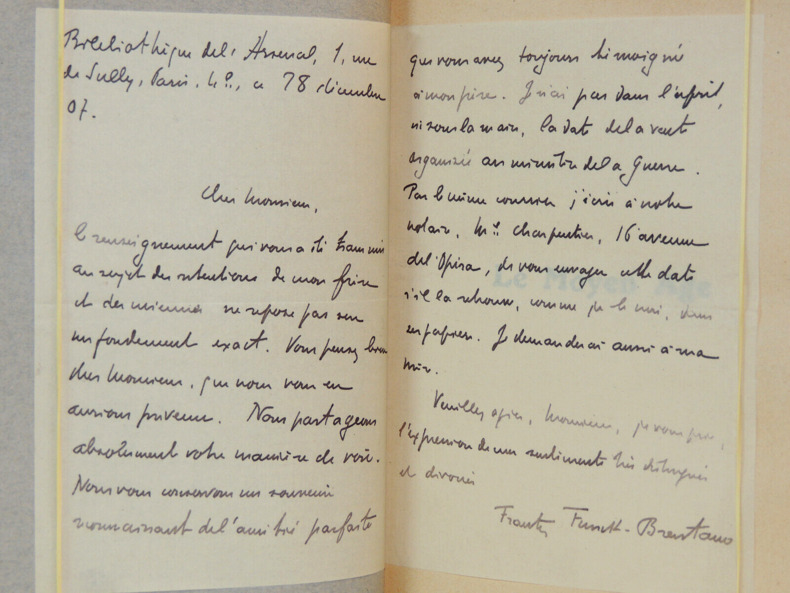 Bibliothèque de l'Arsenal, 1, rue
de Sully, Paris, 4e., ce 18 décembre
07.
Cher Monsieur,
le renseignement qui vous a été transmis
au sujet des intentions de mon frère
et des miennes ne repose pas sur
un fondement exact. Vous pensez bien
cher Monsieur, que nous vous en
aurions prévenu. Nous partageons
absolument votre manière de voir.
Nous vous conservons un souvenir
reconnaissant de l'amitié parfaite
que vous avez toujours témoignée
à mon père. Je n'ai pas dans l'esprit,
ni sous la main, la date de la vente
organisée au ministère de la Guerre.
Par le même courrier j'écris à notre
notaire, Me Charpentier, 16 avenue
de l'Opéra, de vous envoyer cette date
s'il la retrouve, comme je le crois, dans
ses papiers. Je demanderai aussi à ma
mère.
Le Moyen Age
Veuillez agréer, Monsieur, je vous prie,
l'expression de mes sentiments très distingués
et dévoués
Frantz Funck-Brentano